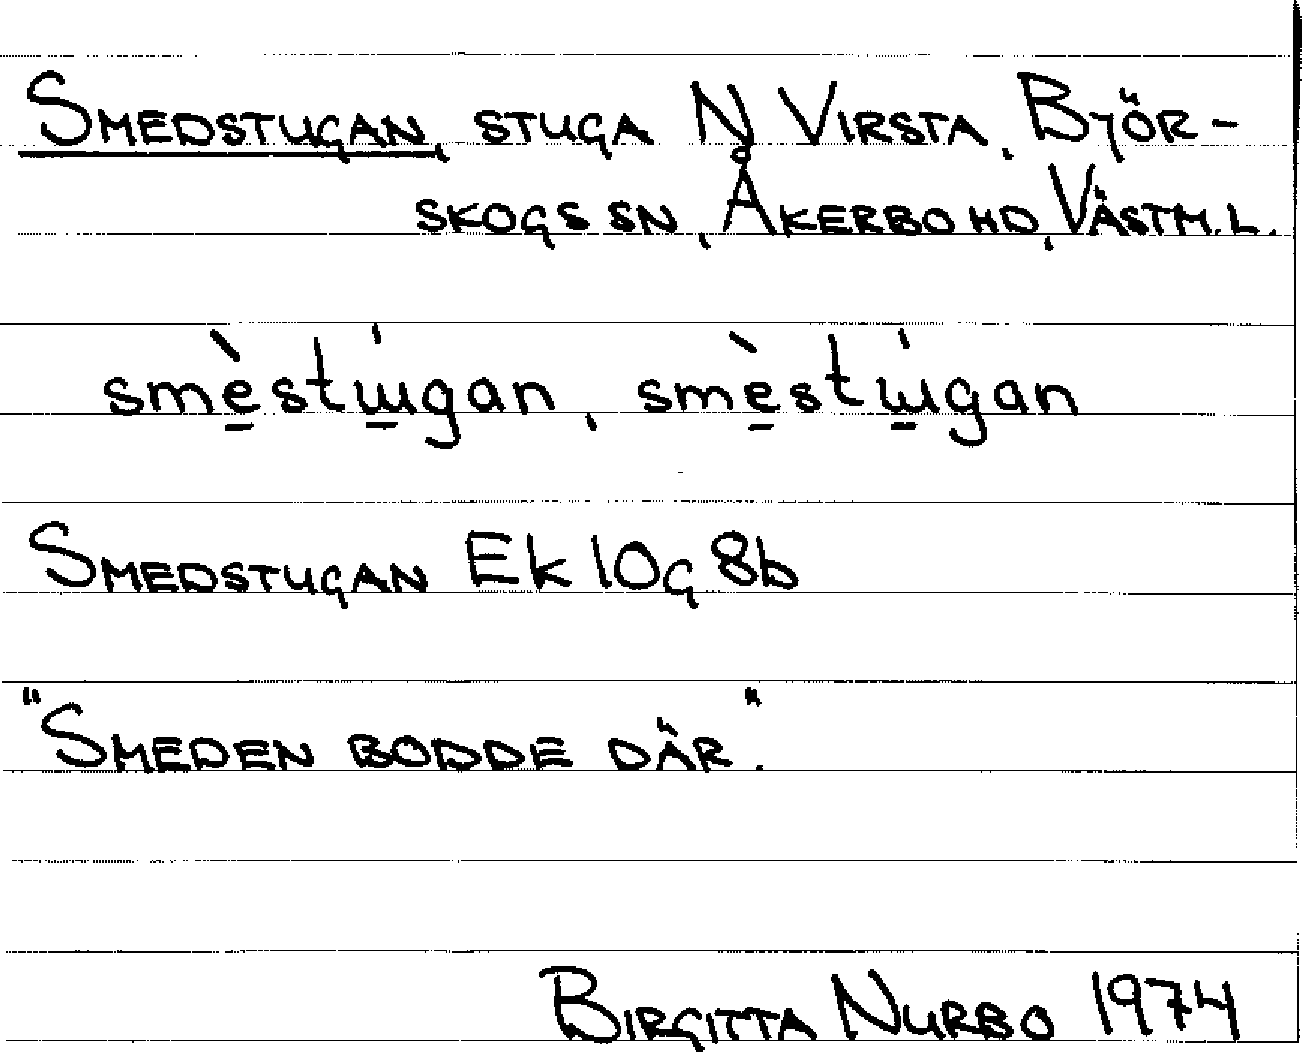 SMEDSTUGAN, STUGA N VIRSTA, BJÖR-
SKOGS SN, ÅKERBO HD, VÄSTM. L.
smè̱stɯ̱́gan, smè̱stɯ̱́gan
SMEDSTUGAN Ek 10G 8b
"SMEDEN BODDE DÄR."
BIRGITTA NURBO 1974